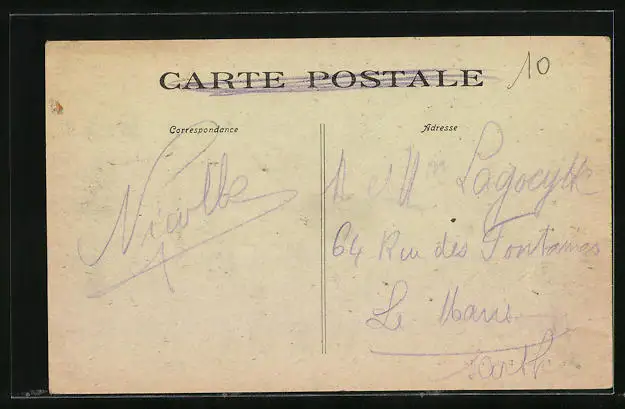 CARTE POSTALE
10
Correspondance
Adresse
Nicolle
M et Mme
64 Rue des Fontaines
Le Mans
Sarthe